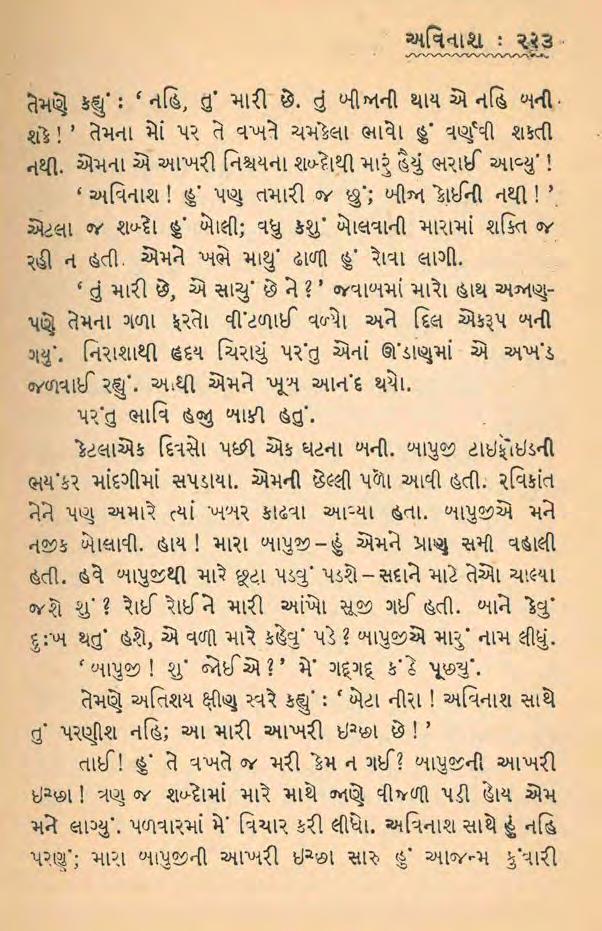 અવિનાશ : ૨૨૩
તેમણે કહ્યું : ‘ નહિ, તું મારી છે. તું બીજાની થાય એ નહિ બની
શકે ! ’ તેમના મોં પર તે વખતે ચમકેલા ભાવો હું વર્ણવી શકતી
નથી. એમના એ આખરી નિશ્ચયના શબ્દોથી મારું હૈયું ભરાઈ આવ્યું !
‘ અવિનાશ ! હું પણ તમારી જ છું; બીજા કોઈની નથી ! ’
એટલા જ શબ્દો હું બોલી; વધુ કશું બોલવાની મારામાં શક્તિ જ
રહી ન હતી. એમને ખભે માથું ઢાળી હું રોવા લાગી.
‘ તું મારી છે, એ સાચું છે ને ? ’ જવાબમાં મારો હાથ અજાણ-
પણે તેમના ગળા ફરતો વીંટળાઈ વળ્યો અને દિલ એકરૂપ બની
ગયું. નિરાશાથી હૃદય ચિરાયું પરંતુ એનાં ઊંડાણમાં એ અખંડ
જળવાઈ રહ્યું. આથી એમને ખૂબ આનંદ થયો.
પરંતુ ભાવિ હજી બાકી હતું.
કેટલાએક દિવસો પછી એક ઘટના બની. બાપુજી ટાઇફૉઇડની
ભયંકર માંદગીમાં સપડાયા. એમની છેલ્લી પળો આવી હતી. રવિકાંત
નેને પણ અમારે ત્યાં ખબર કાઢવા આવ્યા હતા. બાપુજીએ મને
નજીક બોલાવી. હાય ! મારા બાપુજી – હું એમને પ્રાણ સમી વહાલી
હતી. હવે બાપુજીથી મારે છૂટા પડવું પડશે – સદાને માટે તેઓ ચાલ્યા
જશે શું ? રોઈ રોઈને મારી આંખો સૂજી ગઈ હતી. બાને કેવું
દુઃખ થતું હશે, એ વળી મારે કહેવું પડે ? બાપુજીએ મારું નામ લીધું.
‘ બાપુજી ! શું જોઈએ ? ’ મેં ગદ્‌ગદ્ કંઠે પૂછ્યું.
તેમણે અતિશય ક્ષીણ સ્વરે કહ્યું : ‘ બેટા નીરા ! અવિનાશ સાથે
તું પરણીશ નહિ; આ મારી આખરી ઇચ્છા છે ! ’
તાઈ ! હું તે વખતે જ મરી કેમ ન ગઈ ? બાપુજીની આખરી
ઇચ્છા ! ત્રણ જ શબ્દોમાં મારે માથે જાણે વીજળી પડી હોય એમ
મને લાગ્યું. પળવારમાં મેં વિચાર કરી લીધો. અવિનાશ સાથે હું નહિ
પરણું; મારા બાપુજીની આખરી ઇચ્છા સારુ હું આજન્મ કુંવારી